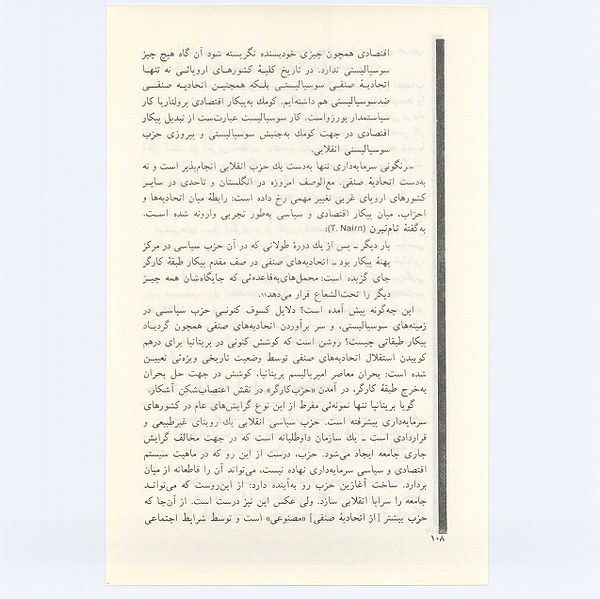 اقتصادی همچون چیزی خودبسنده نگریسته شود آن گاه هیچ چیز
سوسیالیستی ندارد. در تاریخ کلیهٔ کشورهای اروپائی نه تنها
اتحادیهٔ صنفی سوسیالیستی بلکه همچنین اتحادیه صنفی
ضدسوسیالیستی هم داشته‌ایم. کومك به‌پیکار اقتصادی پرولتاریا کار
سیاستمدار بورژواست. کار سوسیالیست عبارت‌ست از تبدیل پیکار
اقتصادی در جهت کومك به‌جنبش سوسیالیستی و پیروزی حزب
سوسیالیستی انقلابی.
سرنگونی سرمایه‌داری تنها به‌دست یك حزب انقلابی انجام‌پذیر است و نه
به‌دست اتحادیهٔ صنفی. مع‌الوصف امروزه در انگلستان و تاحدی در سایر
کشورهای اروپای غربی تغییر مهمی رخ داده است: رابطهٔ میان اتحادیه‌ها و
احزاب، میان پیکار اقتصادی و سیاسی به‌طور تجربی وارونه شده است.
به‌گفتهٔ تام‌نیرن (T. Nairn):
بار دیگر ـ پس از یك دورهٔ طولانی که در آن حزب سیاسی در مرکز
پهنهٔ پیکار بود ـ اتحادیه‌های صنفی در صف مقدم پیکار طبقهٔ کارگر
جای گزیده است: محمل‌های به‌قاعده‌ئی که جایگاه‌شان همه چیز
دیگر را تحت‌الشعاع قرار می‌دهد
این چه‌گونه پیش آمده است؟ دلایل کسوف کنونی حزب سیاسی در
زمینه‌های سوسیالیستی، و سر برآوردن اتحادیه‌های صنفی همچون گردباد
پیکار طبقاتی چیست؟ روشن است که کوشش کنونی در بریتانیا برای درهم
کوبیدن استقلال اتحادیه‌های صنفی توسط وضعیت تاریخی ویژه‌ئی تعیین
شده است: بحران معاصر امپریالیسم بریتانیا، کوشش در جهت حل بحران
به‌خرج طبقهٔ کارگر، در آمدن «حزب‌کارگر» در نقش اعتصاب‌شکن آشکار.
گویا بریتانیا تنها نمونه‌ئی مفرط از این نوع گرایش‌های عام در کشورهای
سرمایه‌داری پیشرفته است. حزب سیاسی انقلابی یك روبنای غیرطبیعی و
قراردادی است ـ یك سازمان داوطلبانه است که در جهت مخالف گرایش
جاری جامعه ایجاد می‌شود. حزب، درست از این رو که در ماهیت سیستم
اقتصادی و سیاسی سرمایه‌داری نهاده نیست، می‌تواند آن را قاطعانه از میان
بردارد. ساخت آغازین حزب رو به‌آینده دارد: از این‌روست که می‌تواند
جامعه را سراپا انقلابی سازد. ولی عکس این نیز درست است. از آن‌جا که
حزب بیشتر [از اتحادیهٔ صنفی] «مصنوعی» است و توسط شرایط اجتماعی
۱۰۸